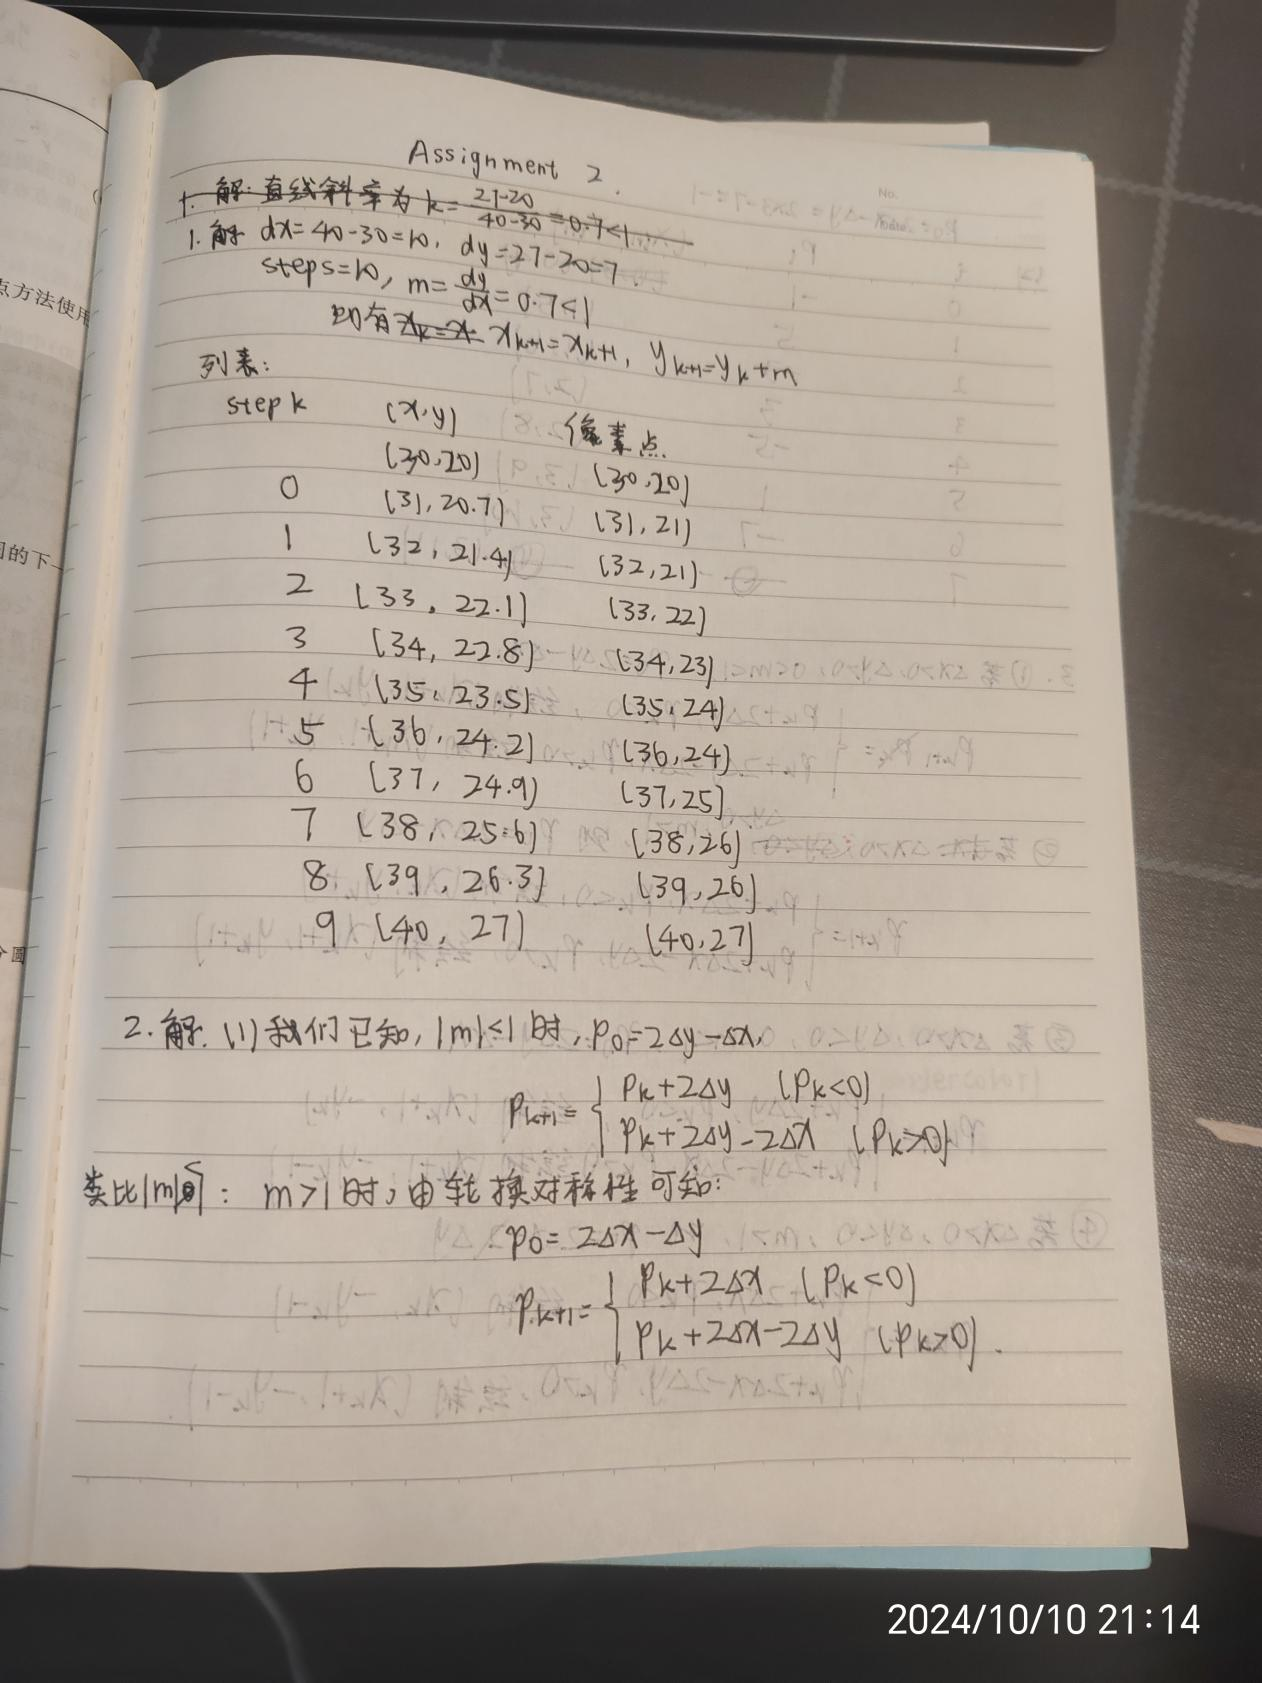 Assignment 2.
1. 解: 直线斜率为 k = \frac{27-20}{40-30} = 0.7<1
1. 解 dx=40-30=10, dy=27-20=7
steps=10, m=\frac{dy}{dx}=0.7<1
即有 x_k=x x_{k+1}=x_k+1, y_{k+1}=y_k+m
列表:
step k (x,y) 像素点
(30,20) (30,20)
0 (31,20.7) (31,21)
1 (32,21.4) (32,21)
2 (33,22.1) (33,22)
3 (34,22.8) (34,23)
4 (35,23.5) (35,24)
5 (36,24.2) (36,24)
6 (37,24.9) (37,25)
7 (38,25.6) (38,26)
8 (39,26.3) (39,26)
9 (40,27) (40,27)
2. 解. (1) 我们已知, |m|<1时, p_0=2Δy-Δx,
p_{k+1}= { p_k+2Δy (p_k<0)
p_k+2Δy-2Δx (p_k>0)
类比|m|<1: m>1时, 由轮换对称性可知:
p_0=2Δx-Δy
p_{k+1}= { p_k+2Δx (p_k<0)
p_k+2Δx-2Δy (p_k>0).
点方法使用
的下一
2024/10/10 21:14